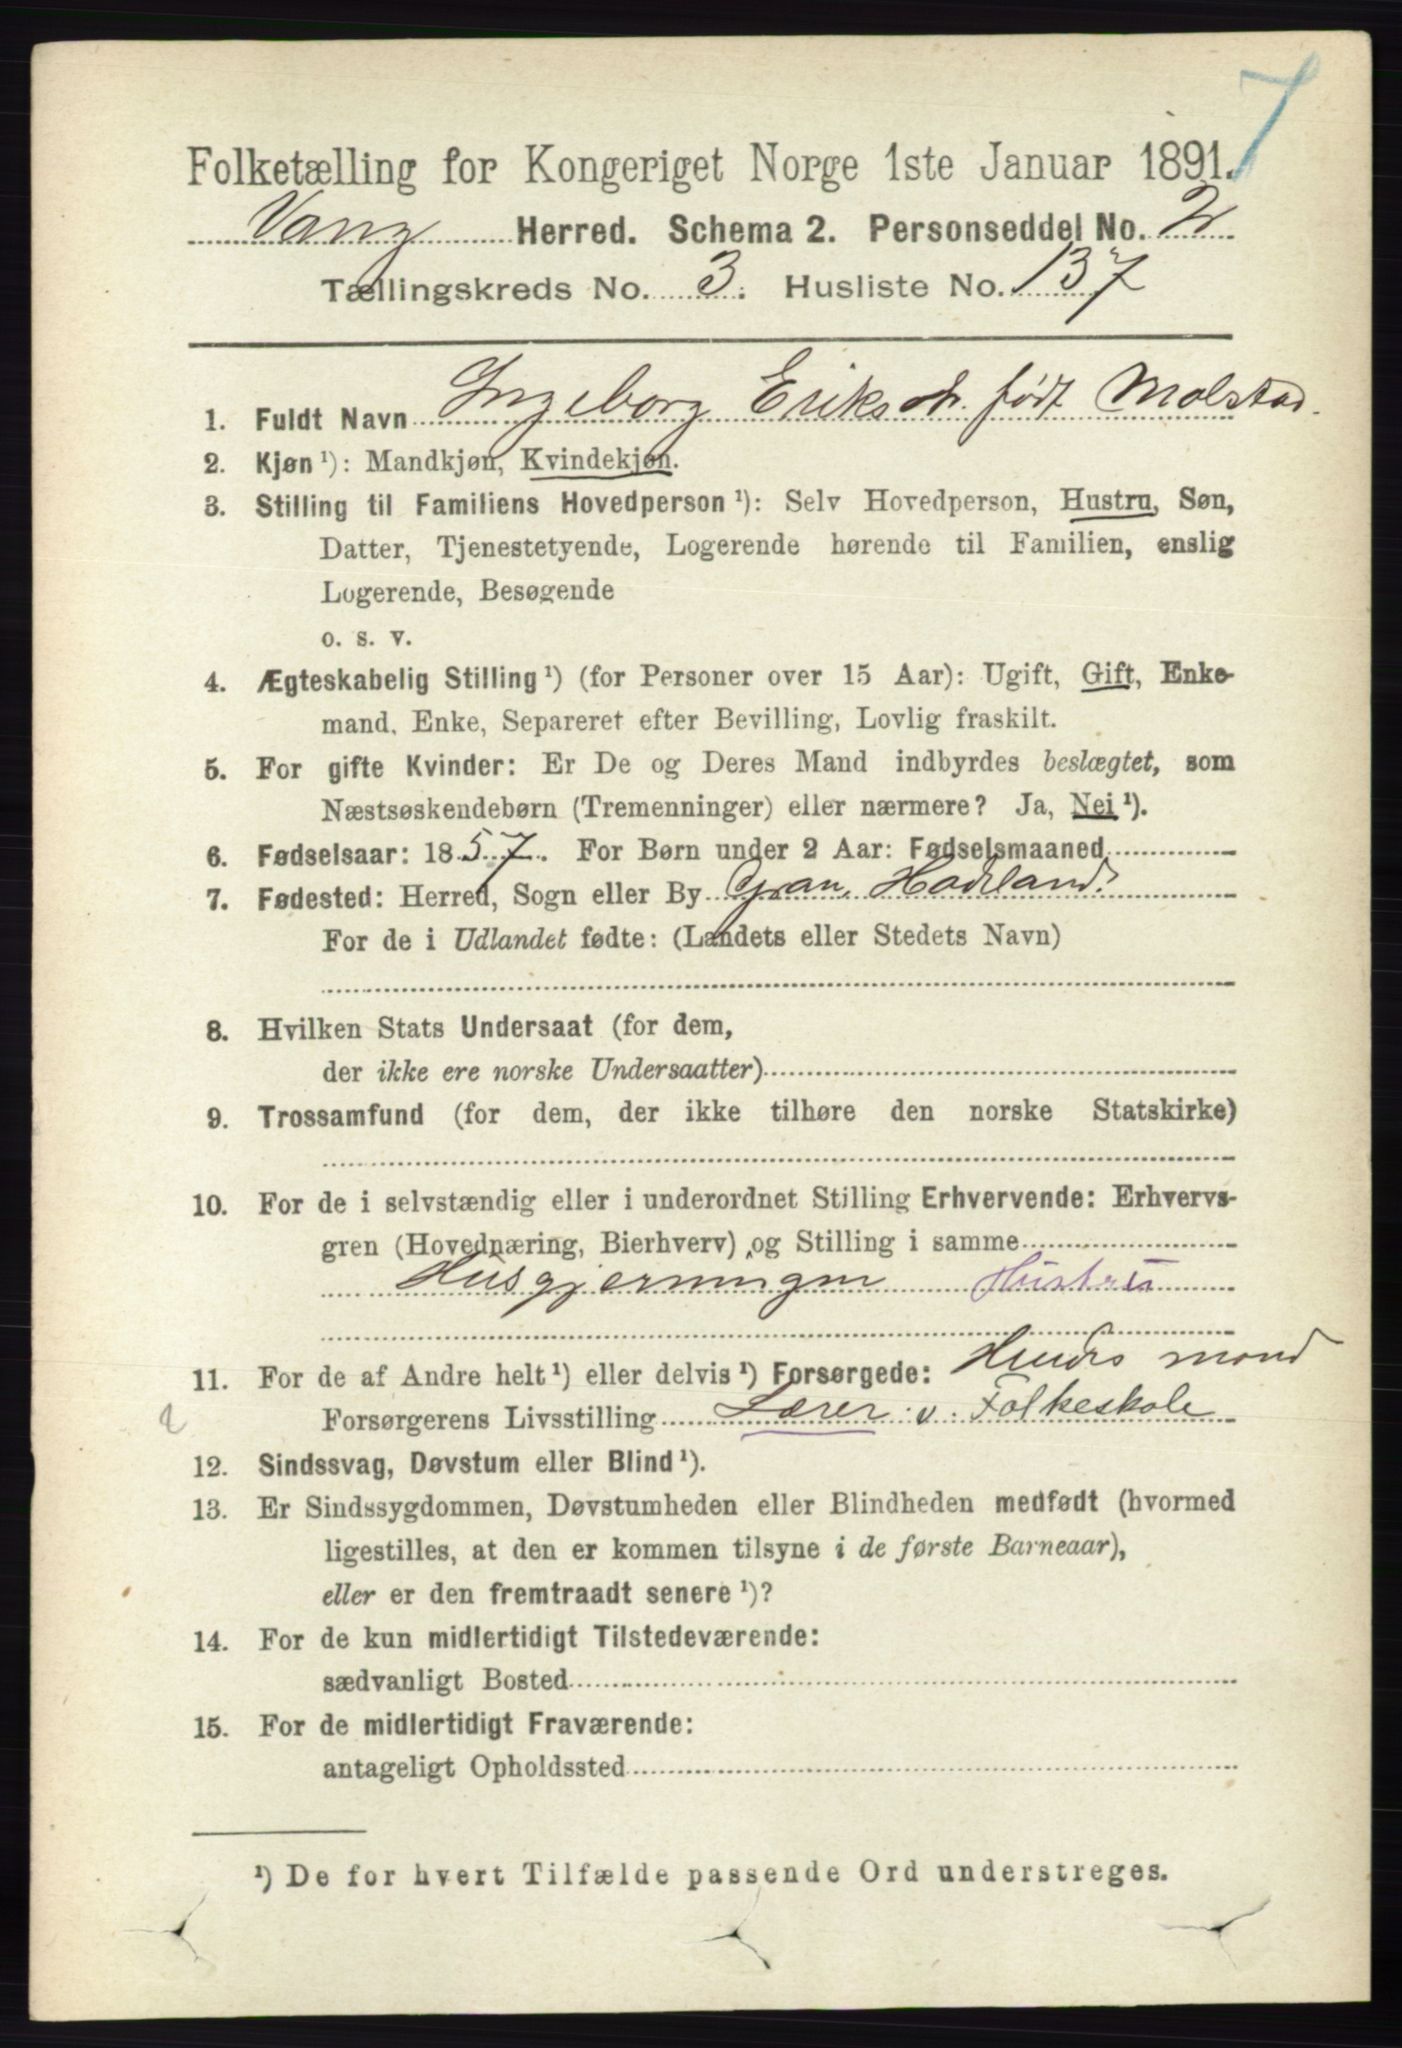 7
Folketælling for Kongeriget Norge 1ste Januar 1891.
Vang Herred. Schema 2. Personseddel No. 2
Tællingskreds No. 3. Husliste No. 137
1. Fuldt Navn Ingeborg Eriksd. født Molstad.
2. Kjøn ¹): Mandkjøn, Kvindekjøn.
3. Stilling til Familiens Hovedperson ¹): Selv Hovedperson, Hustru, Søn,
Datter, Tjenestetyende, Logerende hørende til Familien, enslig
Logerende, Besøgende
o. s. v.
4. Ægteskabelig Stilling ¹) (for Personer over 15 Aar): Ugift, Gift, Enke-
mand, Enke, Separeret efter Bevilling, Lovlig fraskilt.
5. For gifte Kvinder: Er De og Deres Mand indbyrdes beslægtet, som
Næstsøskendebørn (Tremenninger) eller nærmere? Ja, Nei ¹).
6. Fødselsaar: 1857. For Børn under 2 Aar: Fødselsmaaned
7. Fødested: Herred, Sogn eller By Gran, Hadeland.
For de i Udlandet fødte: (Landets eller Stedets Navn)
8. Hvilken Stats Undersaat (for dem,
der ikke ere norske Undersaatter)
9. Trossamfund (for dem, der ikke tilhøre den norske Statskirke)
10. For de i selvstændig eller i underordnet Stilling Erhvervende: Erhvervs-
gren (Hovednæring, Bierhverv) og Stilling i samme
Husgjerningen Hustru
11. For de af Andre helt ¹) eller delvis ¹) Forsørgede: Hendes mand
Forsørgerens Livsstilling Lærer v. Folkeskole
12. Sindssvag, Døvstum eller Blind ¹).
13. Er Sindssygdommen, Døvstumheden eller Blindheden medfødt (hvormed
ligestilles, at den er kommen tilsyne i de første Barneaar),
eller er den fremtraadt senere ¹)?
14. For de kun midlertidigt Tilstedeværende:
sædvanligt Bosted
15. For de midlertidigt Fraværende:
antageligt Opholdssted
¹) De for hvert Tilfælde passende Ord understreges.